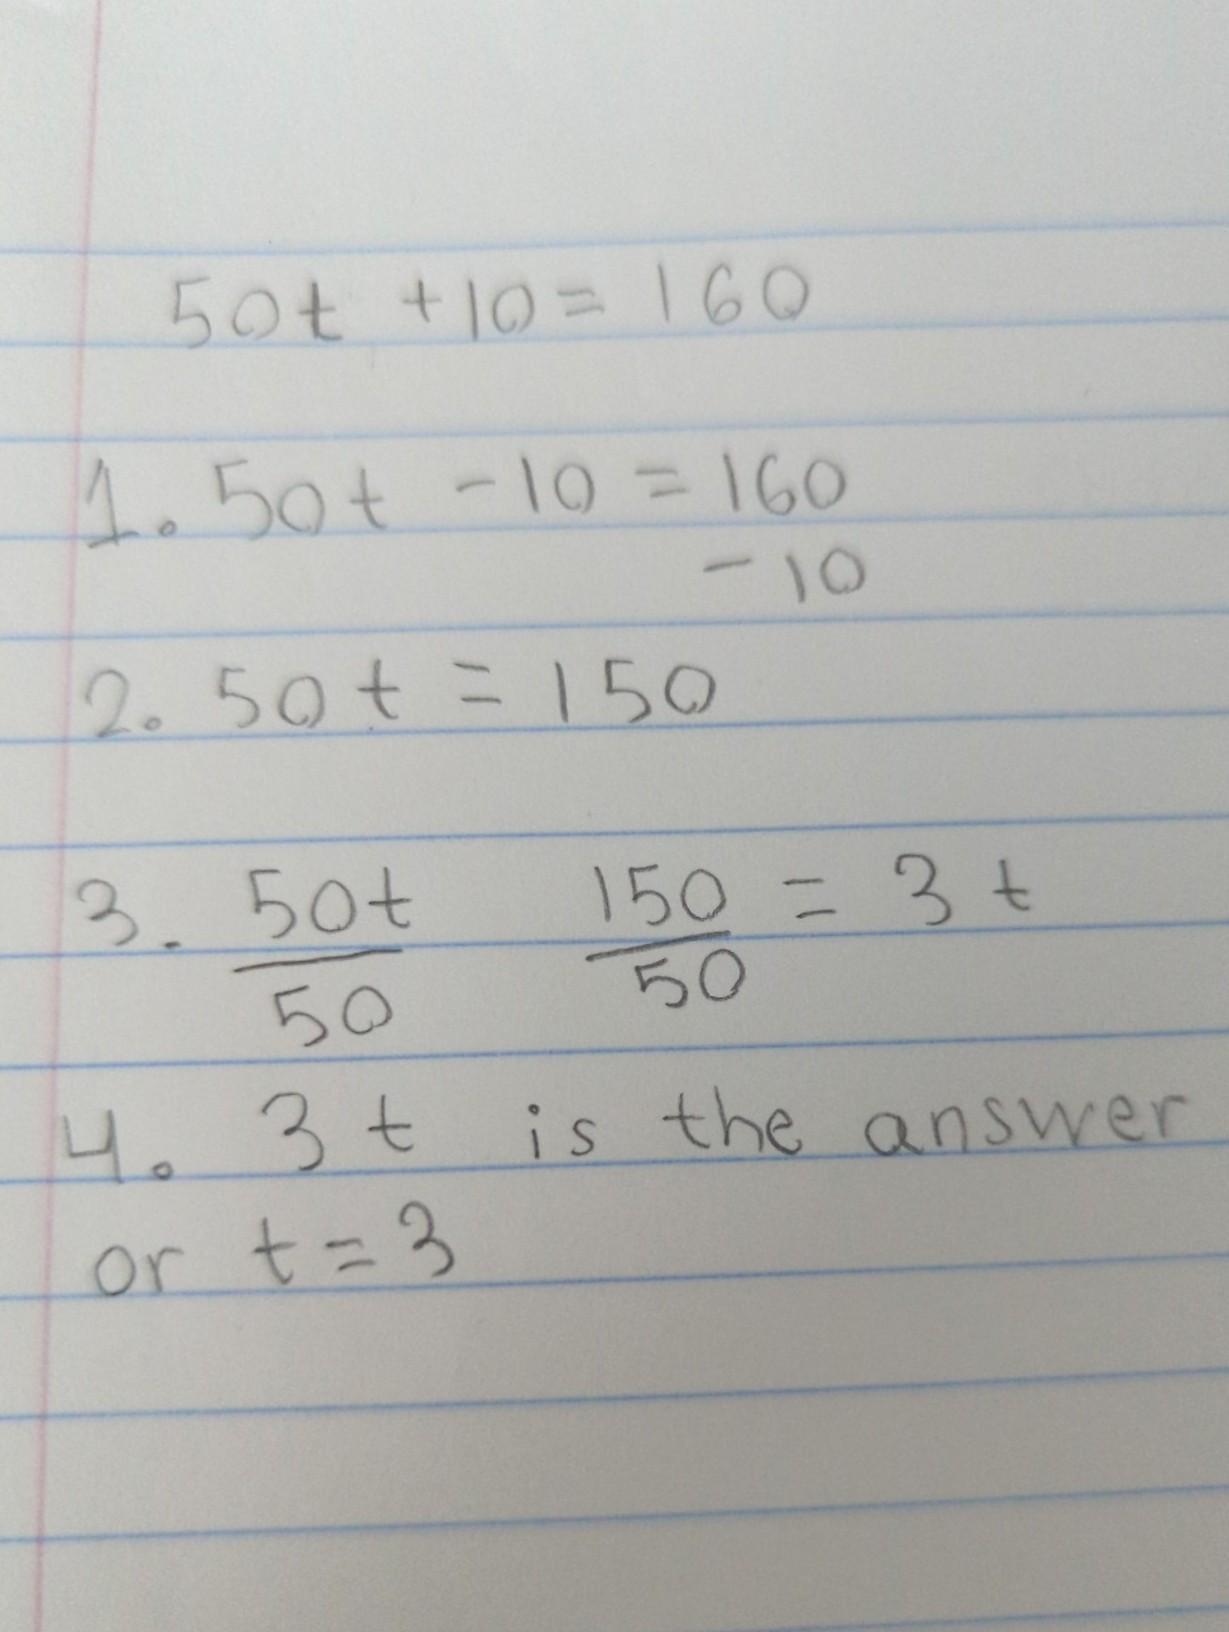 50t +10 = 160
1. 50t -10 = 160
-10
2. 50t = 150
3. 50t 150 = 3t
50 50
4. 3t is the answer
or t = 3